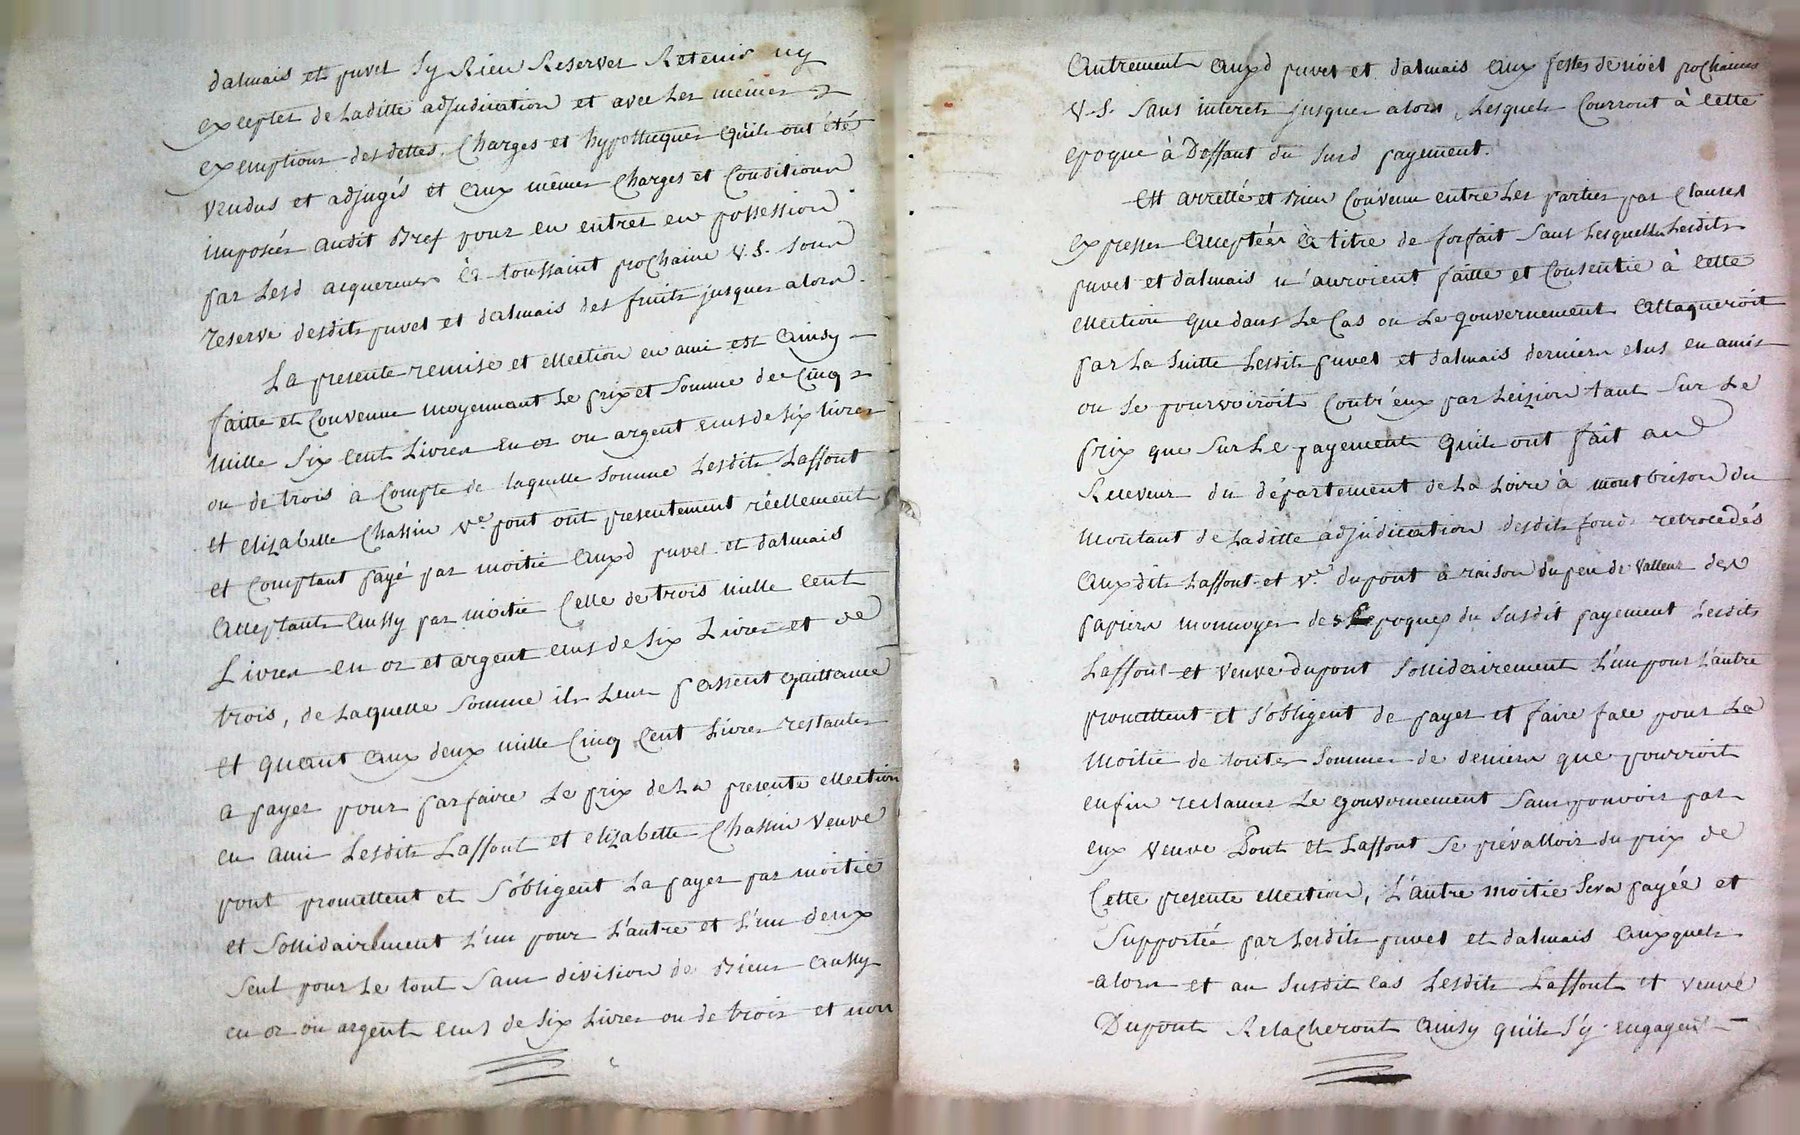 dalmais et puvel sy Rien Reserver Retenir ny
excepter de Laditte adjudication et avec les mêmes
exemptions des dettes. Charges et hypotheques quils ont été
vendus et adjugés et aux mêmes Charges et Conditions
imposées audit Bref pour en entrer en possession
par Lesd acquereurs à la toussaint prochaine V.S. sous
reserve desdits puvel et dalmais des fruits jusques alors.
La presente remise et ellection en ami est ainsy
faitte et Convenue moyennant Le prix et somme de Cinq
mille six cent Livres en or ou argent ecus de six livres
ou de trois a Compte de laquelle somme Lesdits Laffont
et elizabette Chassin Ve pont ont presentement réellement
et Comptant payé par moitié auxd puvel et dalmais
acceptants aussy par moitié Celle de trois mille cent
Livres en or et argent ecus de six Livres et de
trois, de Laquelle somme ils Leur passent quittance
et quant aux deux mille Cinq Cent Livres restantes
a payer pour parfaire Le prix de La presente ellection
en ami Lesdits Laffont et elizabette Chassin veuve
pont promettent et s'obligent La payer par moitié
et sollidairement L'un pour L'autre et L'un deux
seul pour Le tout sans division de Biens aussy
en or ou argent ecus de six Livres ou de trois et non
autrement auxd puvel et dalmais aux festes de nöel prochaines
V.S. sans interets jusques alors, Lesquels Courront à cette
epoque à Deffaut du susd payement.
Est arretté et Bien Convenu entre Les parties par Clauses
expresses acceptées à titre de forfait sans Lesquelles Lesdits
puvel et dalmais n'auroient faitte et Consentie à cette
ellection que dans Le Cas ou Le gouvernement attaqueroit
par La suitte Lesdits puvel et dalmais derniers elus en amis
ou se pourvoiroit Contr'eux par Leizion tant sur Le
prix que sur Le payement quils ont fait au
Receveur du département de La Loire à montbrison du
montant de Laditte adjudication desdits fonds retrocedés
auxdits Laffont et Ve dupont à raison du peu de valleur des
papiers monnoyes des Epoques du susdit payement Lesdits
Laffont et veuve dupont sollidairement L'un pour L'autre
promettent et s'obligent de payer et faire face pour La
moitié de toutes sommes de deniers que pourroit
enfin reclamer Le gouvernement sans pouvoir par
eux veuve Pont et Laffont se prévalloir du prix de
Cette presente ellection, L'autre moitié sera payée et
supportée par Lesdits puvel et dalmais auxquels
alors et au susdit cas Lesdits Laffont et veuve
Dupont Relacheront ainsy quils s'y engagent